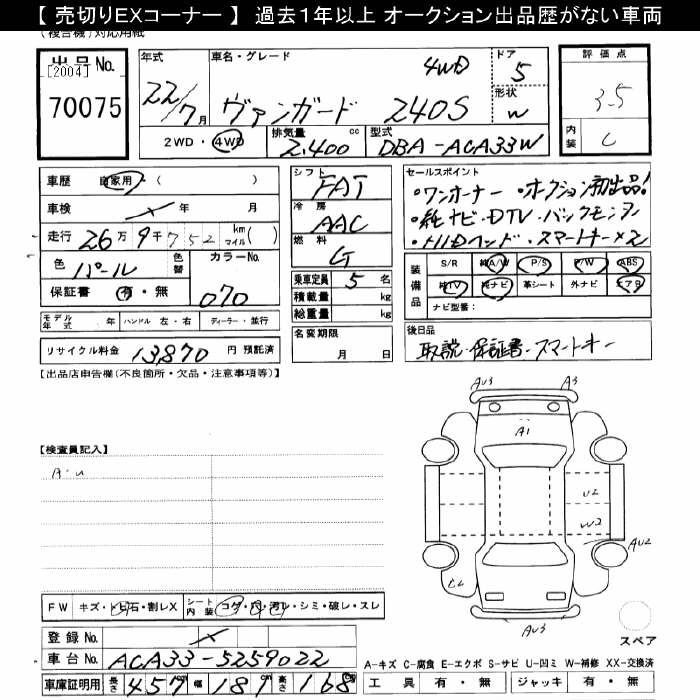 【 売切りEXコーナー 】 過去1年以上 オークション出品歴がない車両
(複合機)対応用紙
出品No.
[2004]
70075
年式
22/7月
車名・グレード
4WD
ヴァンガード 240S
ドア
5
形状
W
評価点
3.5
内装
C
2WD・4WD
排気量
2,400 cc
型式
DBA-ACA33W
車歴 自家用・( )
車検 年 月
走行 26万9千752 km マイル( )
色 パール 色替
カラーNo.
070
保証書 有・無
モデル年式 年 ハンドル 左・右 ディーラー・並行
リサイクル料金 13,870 円 預託済
シフト
FAT
冷房
AAC
燃料
G
乗車定員 5 名
積載量 kg
総重量 kg
名変期限
月 日
セールスポイント
・ワンオーナー ・オークション初出品!
・純ナビ・DTV・バックモニタ
・HIDヘッド・スマートキー×2
装備品
S/R 純A/W P/S P/W ABS
純TV 純ナビ 革シート 外ナビ エアB
ナビ型番:
後日品
取説・保証書・スマートキー
【出品店申告欄(不良箇所・欠品・注意事項等)】
【検査員記入】
A・U
AU3 A3
A1
U2
W2
AU2
AU3
スペア
FW キズ・トビ石・割レX シート内装 コゲ・穴・汚レ・シミ・破レ・スレ
登録No.
車台No. ACA33-5259022
車庫証明用 長さ 457 cm 幅 187 cm 高さ 168 cm
A-キズ C-腐食 E-エクボ S-サビ U-凹ミ W-補修 XX-交換済
工具 有・無 ジャッキ 有・無